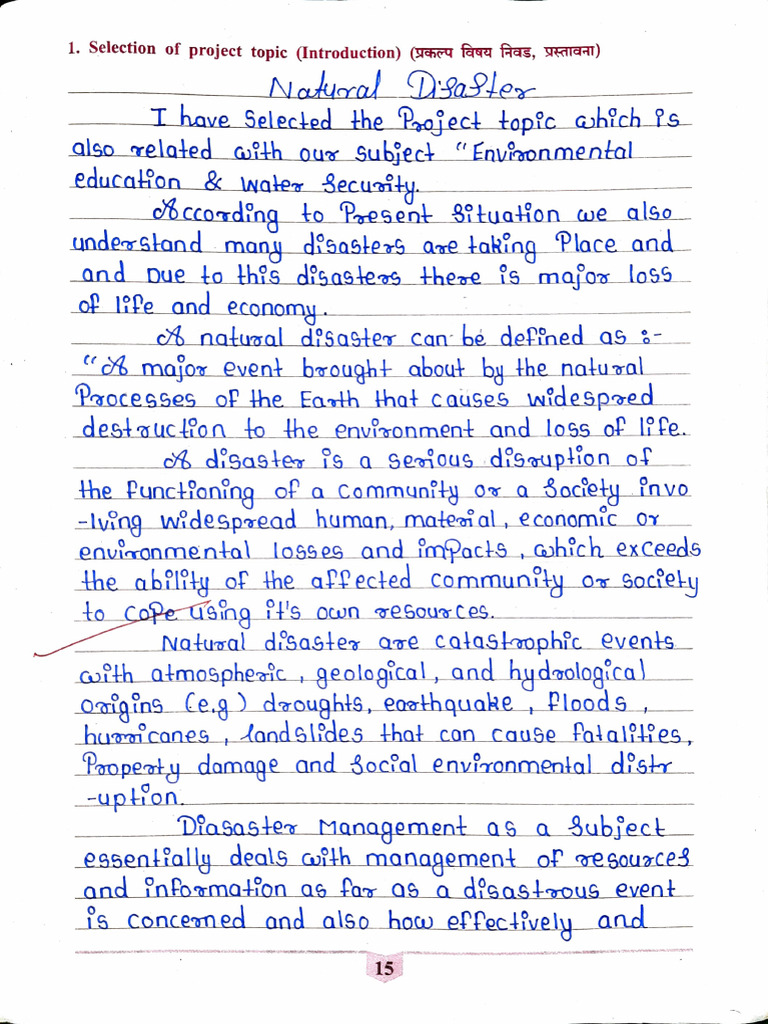 1. Selection of project topic (Introduction) (प्रकल्प विषय निवड, प्रस्तावना)
Natural Disaster
I have selected the Project topic which is
also related with our subject "Environmental
education & water security.
According to Present situation we also
understand many disasters are taking Place and
and Due to this disasters there is major loss
of life and economy.
A natural disaster can be defined as :-
"A major event brought about by the natural
Processes of the Earth that causes widespred
destruction to the environment and loss of life.
A disaster is a serious disruption of
the functioning of a community or a society invo
-lving widespread human, material, economic or
environmental losses and impacts, which exceeds
the ability of the affected community or society
to cope using it's own resources.
Natural disaster are catastrophic events
with atmospheric, geological, and hydrological
origins (e.g) droughts, earthquake, floods,
hurricanes, landslides that can cause fatalities,
Property damage and social environmental distr
-uption.
Diasaster Management as a subject
essentially deals with management of resources
and information as far as a disastrous event
is concerned and also how effectively and
15